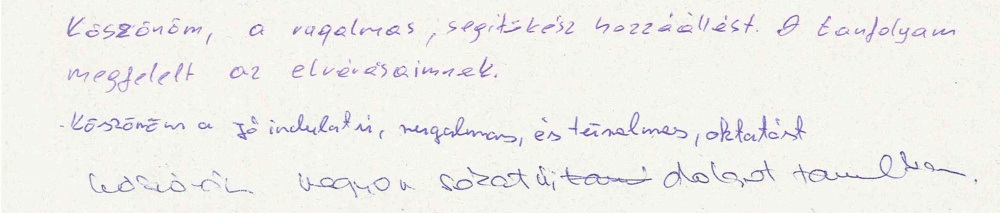 Köszönöm, a rugalmas, segítőkész hozzáállást. A tanfolyam
megfelelt az elvárásaimnek.
Köszönöm a jó indulatú, rugalmas, és türelmes, oktatást
Köszönöm nagyon új dolgot tanultam.